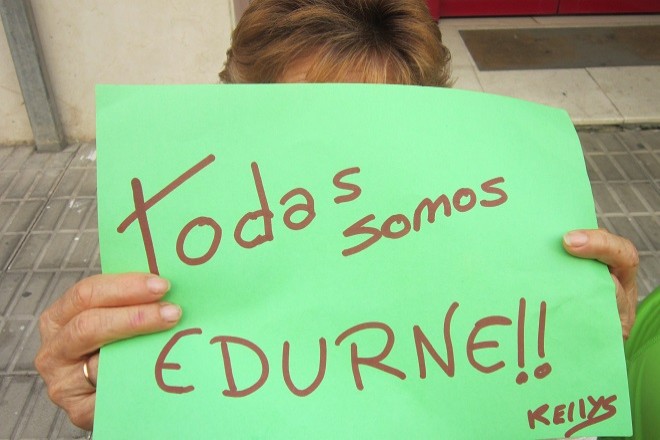 Todas somos
EDURNE!!
Kellys